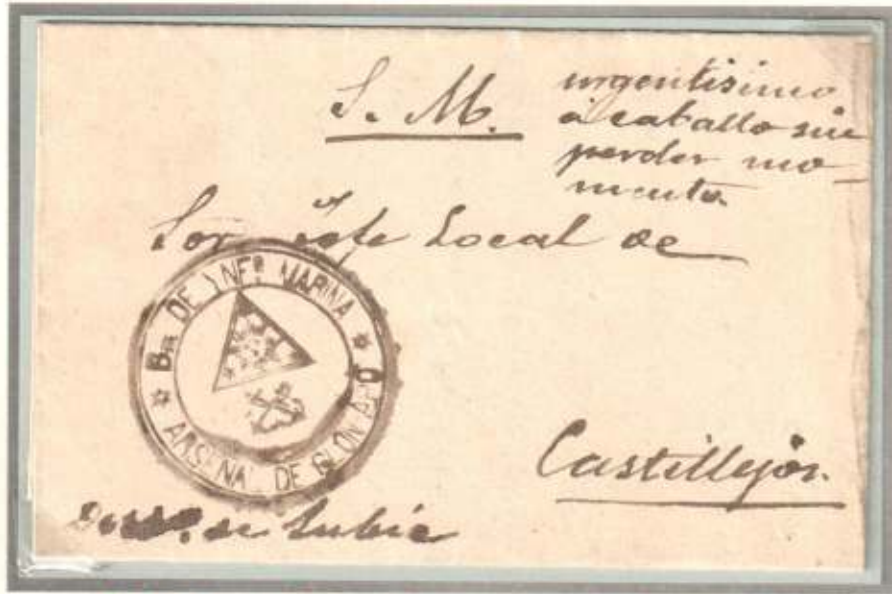 S. M.
urgentisimo
á caballo sin
perder mo-
mento.
Sor Jefe Local de
Bn DE YNFª MARINA
ARSENAL DE OLONGAPO
Castillejos.
de Subic